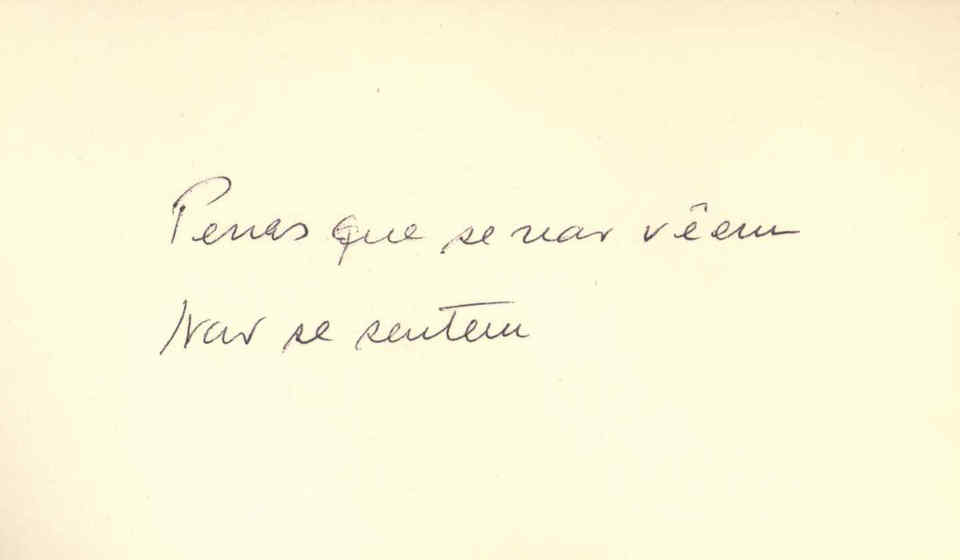 Penas que se nao vêem
Nao se sentem